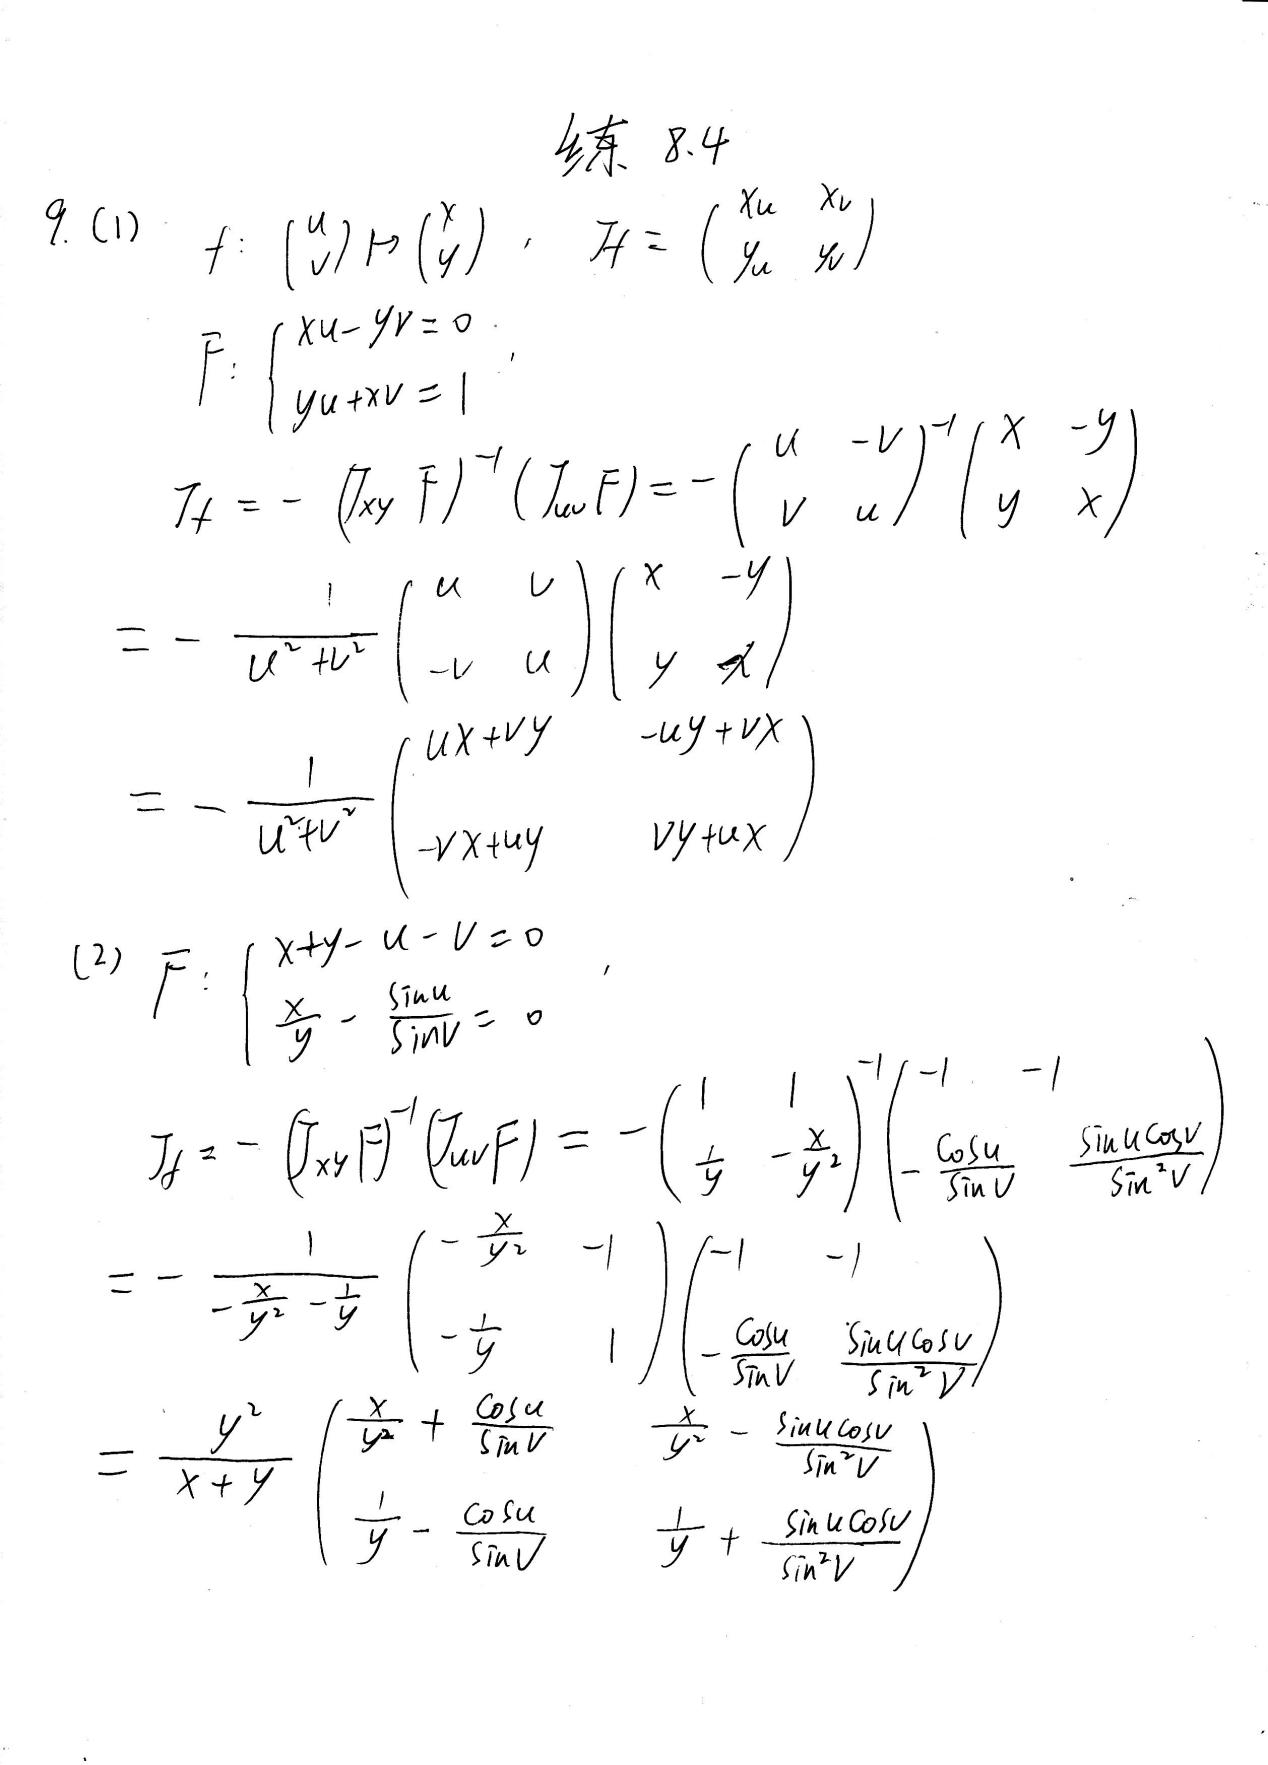 练 8.4
9. (1) f: \begin{pmatrix} u \\ v \end{pmatrix} \mapsto \begin{pmatrix} x \\ y \end{pmatrix}, J_f = \begin{pmatrix} x_u & x_v \\ y_u & y_v \end{pmatrix}
F: \begin{cases} xu - yv = 0 \\ yu + xv = 1 \end{cases},
J_f = -(J_{xy} F)^{-1} (J_{uv} F) = -\begin{pmatrix} u & -v \\ v & u \end{pmatrix}^{-1} \begin{pmatrix} x & -y \\ y & x \end{pmatrix}
= -\frac{1}{u^2+v^2} \begin{pmatrix} u & v \\ -v & u \end{pmatrix} \begin{pmatrix} x & -y \\ y & x \end{pmatrix}
= -\frac{1}{u^2+v^2} \begin{pmatrix} ux+vy & -uy+vx \\ -vx+uy & vy+ux \end{pmatrix}
(2) F: \begin{cases} x+y-u-v=0 \\ \frac{x}{y} - \frac{\sin u}{\sin v} = 0 \end{cases},
J_f = -(J_{xy} F)^{-1} (J_{uv} F) = -\begin{pmatrix} 1 & 1 \\ \frac{1}{y} & -\frac{x}{y^2} \end{pmatrix}^{-1} \begin{pmatrix} -1 & -1 \\ -\frac{\cos u}{\sin v} & \frac{\sin u \cos v}{\sin^2 v} \end{pmatrix}
= -\frac{1}{-\frac{x}{y^2} - \frac{1}{y}} \begin{pmatrix} -\frac{x}{y^2} & -1 \\ -\frac{1}{y} & 1 \end{pmatrix} \begin{pmatrix} -1 & -1 \\ -\frac{\cos u}{\sin v} & \frac{\sin u \cos v}{\sin^2 v} \end{pmatrix}
= \frac{y^2}{x+y} \begin{pmatrix} \frac{x}{y^2} + \frac{\cos u}{\sin v} & \frac{x}{y^2} - \frac{\sin u \cos v}{\sin^2 v} \\ \frac{1}{y} - \frac{\cos u}{\sin v} & \frac{1}{y} + \frac{\sin u \cos v}{\sin^2 v} \end{pmatrix}